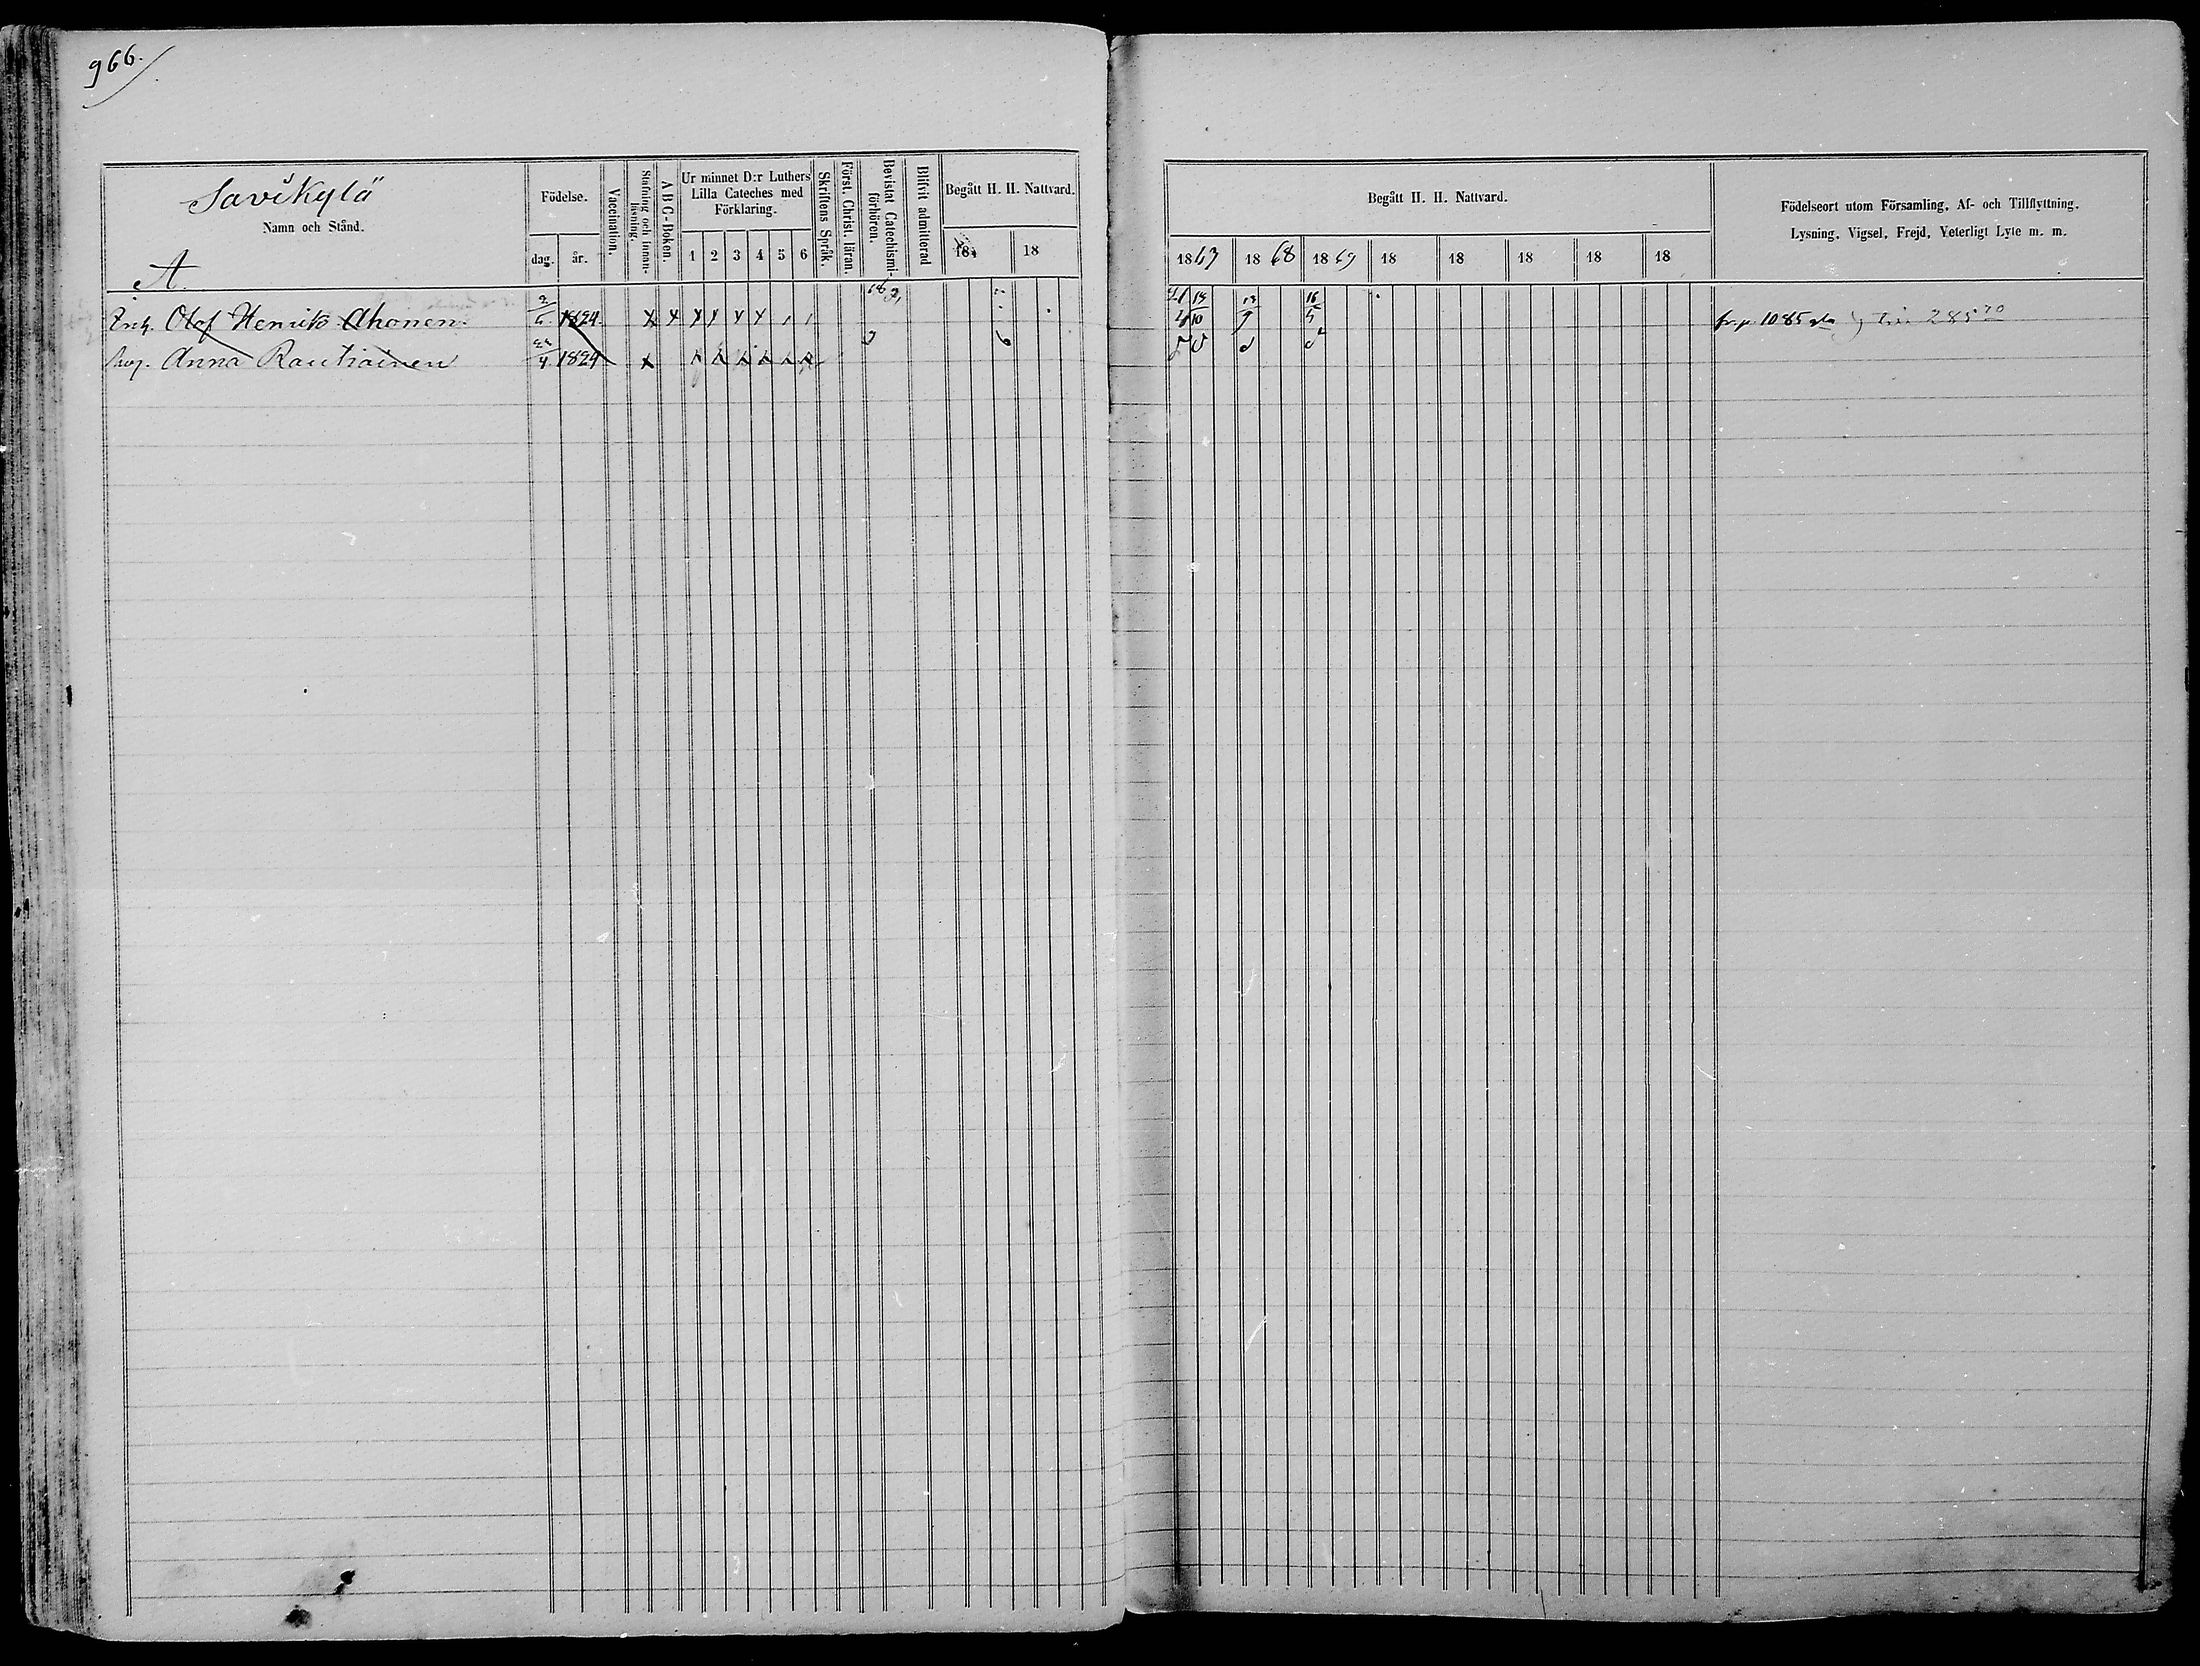 966.
Savikylä
Namn och Stånd.
A.
Födelse.
dag. år.
Vaccination.
Stafning och innanläsning.
A B C-Boken.
Ur minnet D:r Luthers
Lilla Cateches med
Förklaring.
1 2 3 4 5 6
Skriftens Språk.
Först. Christ. läran.
Bevistat Catechismi-förhören.
Blifvit admitterad
Begått H. H. Nattvard.
18 18
Begått H. H. Nattvard.
1867 1868 1869 18 18 18 18 18
Födelseort utom Församling, Af- och Tillflyttning.
Lysning, Vigsel, Frejd, Veterligt Lyte m. m.
Olof Henrik Ahonen 1824 fr. p. 1085
Anna Rautiainen 4 1824